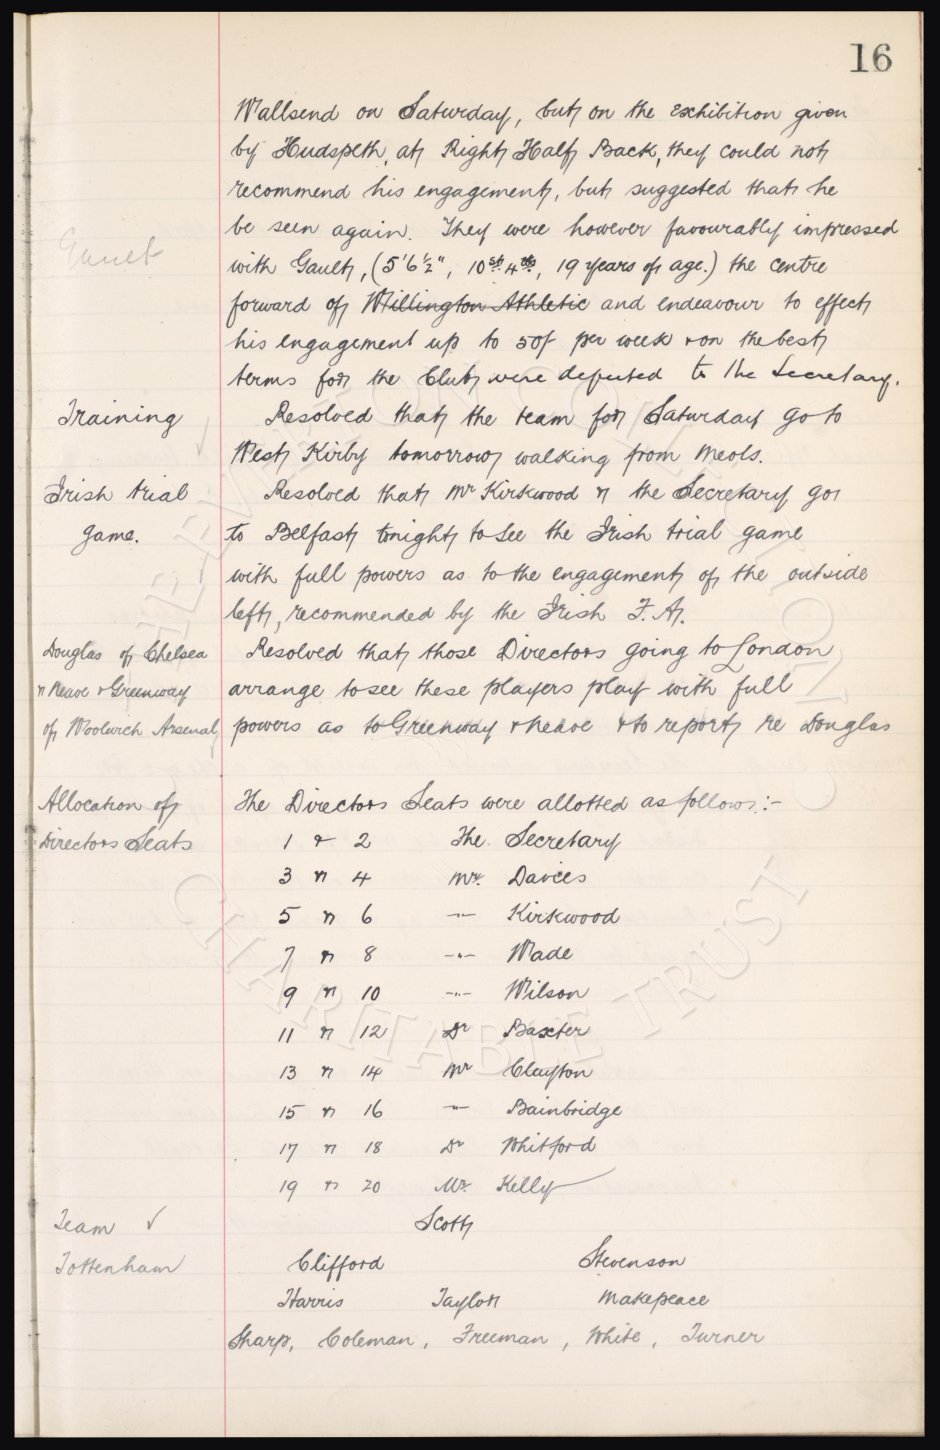 16
Wallsend on Saturday, but on the exhibition given
by Hudspeth, at Right Half Back, they could not
recommend his engagement, but suggested that he
be seen again. They were however favourably impressed
Gault
with Gault, (5'6½", 10st 4lbs, 19 years of age.) the centre
forward of Willington Athletic and endeavour to effect
his engagement up to 50/- per week & on the best
terms for the Club, were deputed to the Secretary.
Training
Resolved that the team for Saturday go to
West Kirby tomorrow, walking from Meols.
Irish trial
game.
Resolved that Mr Kirkwood & the Secretary go
to Belfast tonight to see the Irish trial game
with full powers as to the engagement of the outside
left, recommended by the Irish F.A.
Douglas of Chelsea
& Neave & Greenway
of Woolwich Arsenal
Resolved that those Directors going to London
arrange to see these players play with full
powers as to Greenway & Neave & to report re Douglas
Allocation of
Directors Seats
The Directors Seats were allotted as follows:-
1 & 2 The Secretary
3 & 4 Mr. Davies
5 & 6 -"- Kirkwood
7 & 8 -"- Wade
9 & 10 -"- Wilson
11 & 12 Dr Baxter
13 & 14 Mr Clayton
15 & 16 -"- Bainbridge
17 & 18 Dr Whitford
19 & 20 Mr. Kelly
Team ✓
Tottenham
Scott
Clifford Stevenson
Harris Taylor Makepeace
Sharp, Coleman, Freeman, White, Turner
THE EVERTON COLLECTION
CHARITABLE TRUST